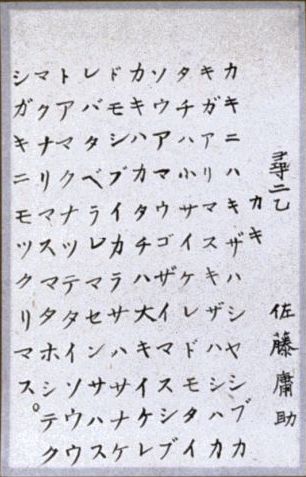 尋二乙 佐藤庸助
カキ
カキニハキザハシヤシブカ
キガアリマスキザハシハカ
タチハ小サイケレドモタイ
ソウアマウゴザイマスシブ
カキハカタチハ大キイケレ
ドモシブイカラサハサナケ
レバタベラレマセンサハス
トアマクナツテタイソウウ
マクナリマスマタホシテク
シガキニモツクリマス。